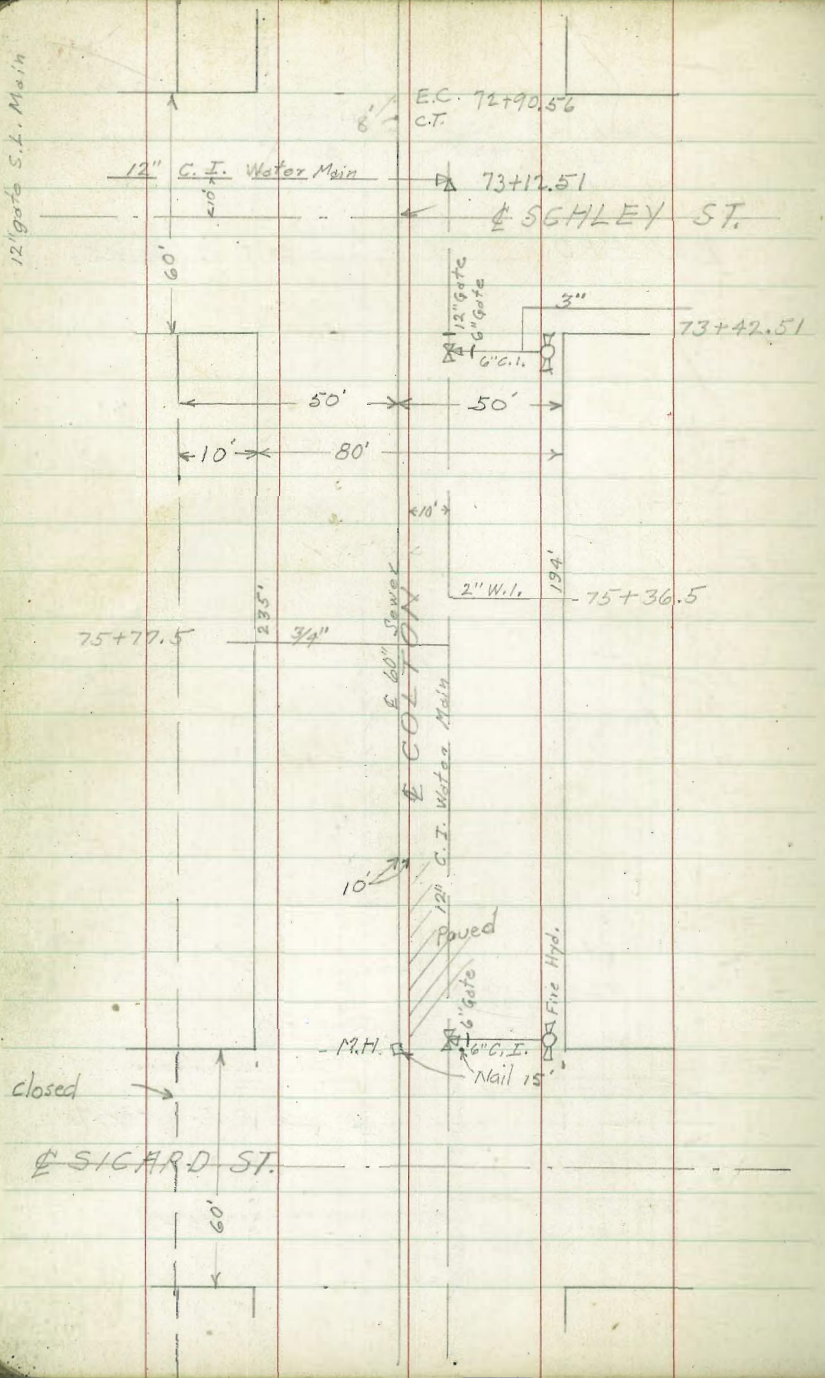 12" gate S.L. Main
E.C. 72+90.56
8'
C.T.
12" C.I. Water Main
10'
73+12.51
℄ SCHLEY ST.
60'
12" Gate
6" Gate
3"
73+42.51
6" C.I.
50'
50'
10'
80'
10'
235'
194'
2" W.I.
75+36.5
75+77.5
3/4"
60" Sewer
℄ COLTON
12" C.I. Water Main
10'
Paved
6" Gate
Fire Hyd.
M.H.
6" C.I.
Nail 15'
closed
℄ SICARD ST.
60'